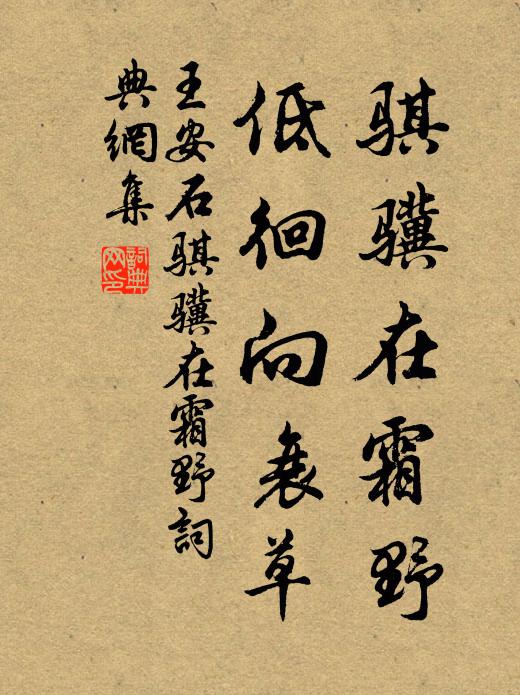 骐骥在霜野
低徊向衰草
王安石骐骥在霜野詞
典網集
詞典
网印